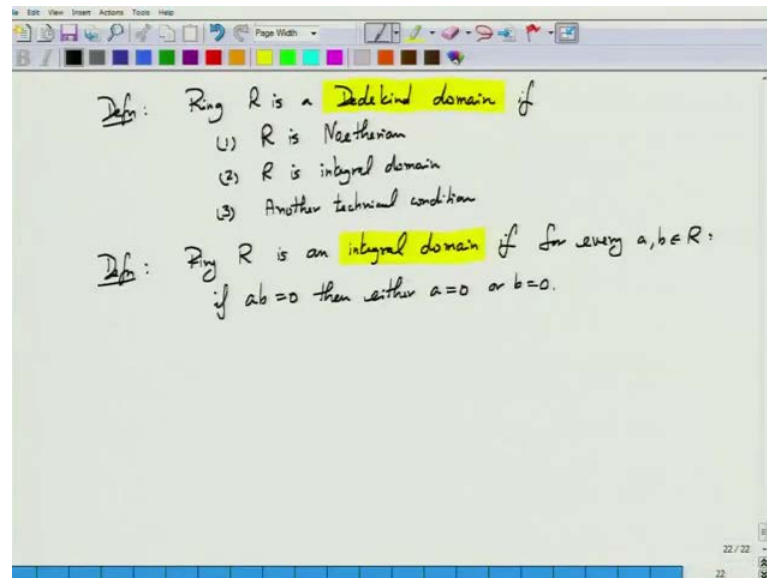 File Edit View Insert Actions Tools Help
Page Width
B I
Defn: Ring R is a Dedekind domain if
(1) R is Noetherian
(2) R is integral domain
(3) Another technical condition
Defn: Ring R is an integral domain if for every a, b ∈ R:
if ab = 0 then either a = 0 or b = 0.
22 / 22
22